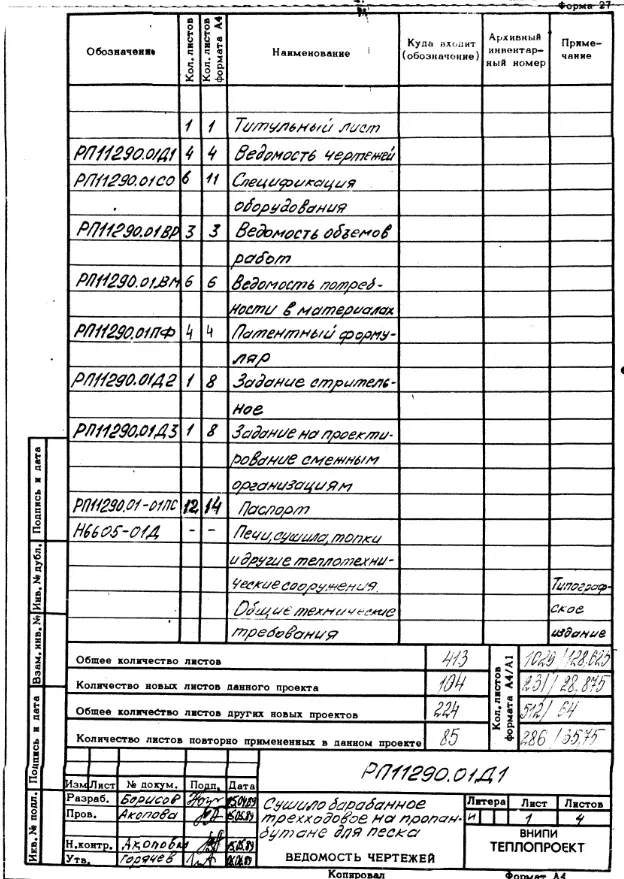 Форма 27
Обозначение Кол. листов Кол. листов формата А4 Наименование Куда входит (обозначение) Архивный инвентарный номер Примечание
1 1 Титульный лист
РП11290.01Д1 4 4 Ведомость чертежей
РП11290.01СО 6 11 Спецификация
оборудования
РП11290.01ВР 3 3 Ведомость объемов
работ
РП11290.01ВМ 6 6 Ведомость потреб-
ности в материалах
РП11290.01ПФ 4 4 Патентный форму-
ляр
РП11290.01Д2 1 8 Задание стритель-
ное
РП11290.01Д3 1 8 Задание на проекти-
рование смежным
организациям
РП11290.01-01ПС 12 14 Паспорт
Н6605-01Д - - Печи, сушила, топки
и другие теплотехни-
ческие сооружения. Типограф-
Общие технические ское
требования издание
Общее количество листов 413 1029/128.625
Количество новых листов данного проекта 104 231/28.875
Общее количество листов других новых проектов 224 512/64
Количество листов повторно примененных в данном проекте 85 286/35.75
Кол. листов формата А4/А1
Подпись и дата
Инв. № дубл.
Взам. инв. №
Подпись и дата
Инв. № подл.
РП11290.01Д1
Изм Лист № докум. Подп. Дата
Разраб. Борисов
Пров. Акопова
Н.контр. Акопова
Утв. Горячев
Сушило барабанное
трехходовое на пропан-
бутане для песка
ВЕДОМОСТЬ ЧЕРТЕЖЕЙ
Литера Лист Листов
И 1 4
ВНИПИ
ТЕПЛОПРОЕКТ
Копировал Формат А4